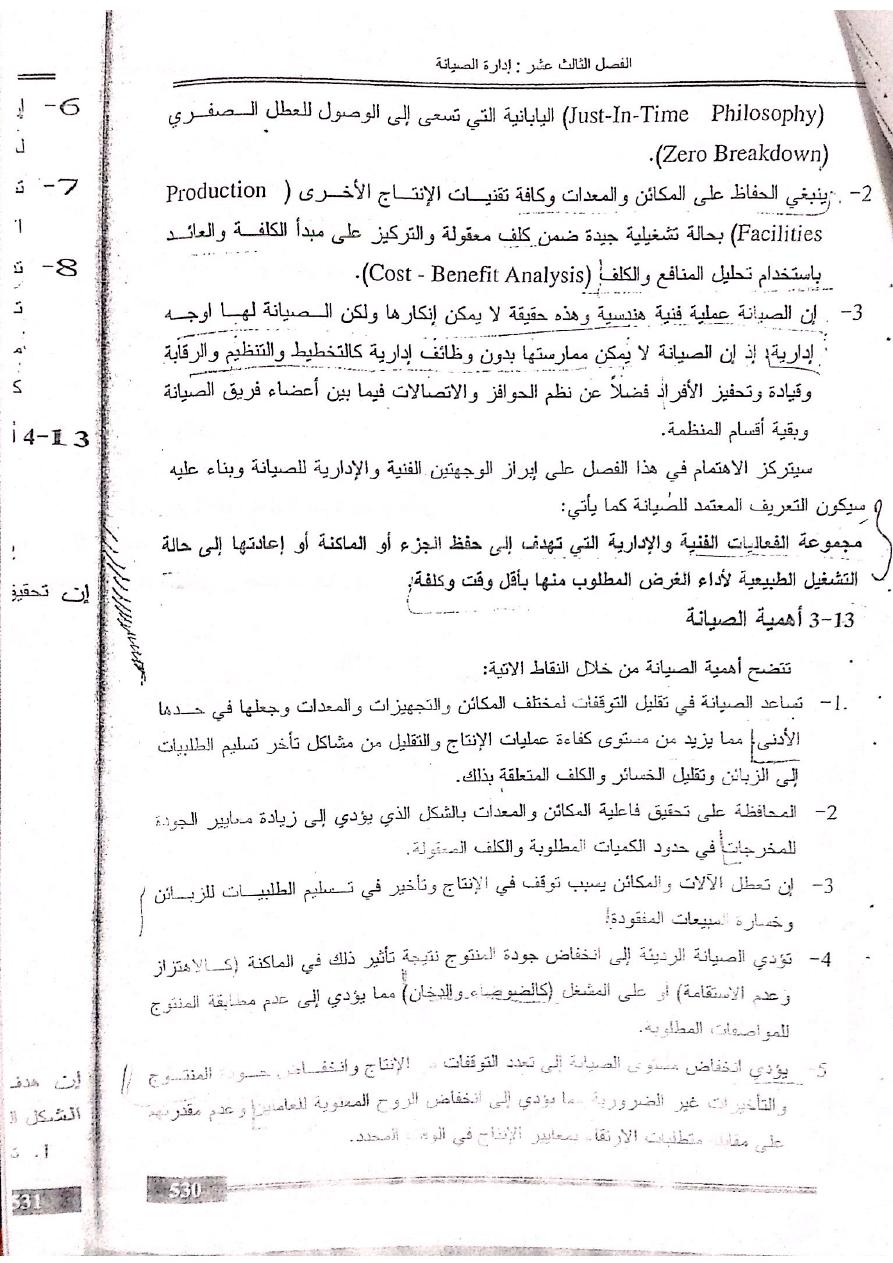 الفصل الثالث عشر : إدارة الصيانة
(Just-In-Time Philosophy) اليابانية التي تسعى إلى الوصول للعطل الصفري
(Zero Breakdown).
2- ينبغي الحفاظ على المكائن والمعدات وكافة تقنيات الإنتاج الأخرى ( Production
Facilities) بحالة تشغيلية جيدة ضمن كلف معقولة والتركيز على مبدأ الكلفة والعائد
باستخدام تحليل المنافع والكلف (Cost - Benefit Analysis).
3- إن الصيانة عملية فنية هندسية وهذه حقيقة لا يمكن إنكارها ولكن الصيانة لها اوجه
إدارية، إذ إن الصيانة لا يمكن ممارستها بدون وظائف إدارية كالتخطيط والتنظيم والرقابة
وقيادة وتحفيز الأفراد فضلاً عن نظم الحوافز والاتصالات فيما بين أعضاء فريق الصيانة
وبقية أقسام المنظمة.
سيتركز الاهتمام في هذا الفصل على إبراز الوجهتين الفنية والإدارية للصيانة وبناء عليه
سيكون التعريف المعتمد للصيانة كما يأتي:
مجموعة الفعاليات الفنية والإدارية التي تهدف إلى حفظ الجزء أو الماكنة أو إعادتها إلى حالة
التشغيل الطبيعية لأداء الغرض المطلوب منها بأقل وقت وكلفة.
3-13 أهمية الصيانة
تتضح أهمية الصيانة من خلال النقاط الاتية:
1- تساعد الصيانة في تقليل التوقفات لمختلف المكائن والتجهيزات والمعدات وجعلها في حدها
الأدنى، مما يزيد من مستوى كفاءة عمليات الإنتاج والتقليل من مشاكل تأخر تسليم الطلبيات
إلى الزبائن وتقليل الخسائر والكلف المتعلقة بذلك.
2- المحافظة على تحقيق فاعلية المكائن والمعدات بالشكل الذي يؤدي إلى زيادة معايير الجودة
للمخرجات في حدود الكميات المطلوبة والكلف المعقولة.
3- إن تعطل الآلات والمكائن يسبب توقف في الإنتاج وتأخير في تسليم الطلبيات للزبائن
وخسارة المبيعات المفقودة.
4- تؤدي الصيانة الرديئة إلى انخفاض جودة المنتوج نتيجة تأثير ذلك في الماكنة (كالاهتزاز
وعدم الاستقامة) او على المشغل (كالضوضاء والدخان) مما يؤدي إلى عدم مطابقة المنتوج
للمواصفات المطلوبة.
5- يؤدي انخفاض مستوى الصيانة إلى تعدد التوقفات الإنتاج وانخفاض جودة المنتوج
والتأخيرات غير الضرورية مما يؤدي إلى انخفاض الروح المعنوية للعاملين وعدم مقدرتهم
على متطلبات الارتقاء بمعايير الإنتاج في الوقت المحدد.
530
6-
7-
8-
4-13
إن تحقيق
إن هدف
الشكل
أ.
531